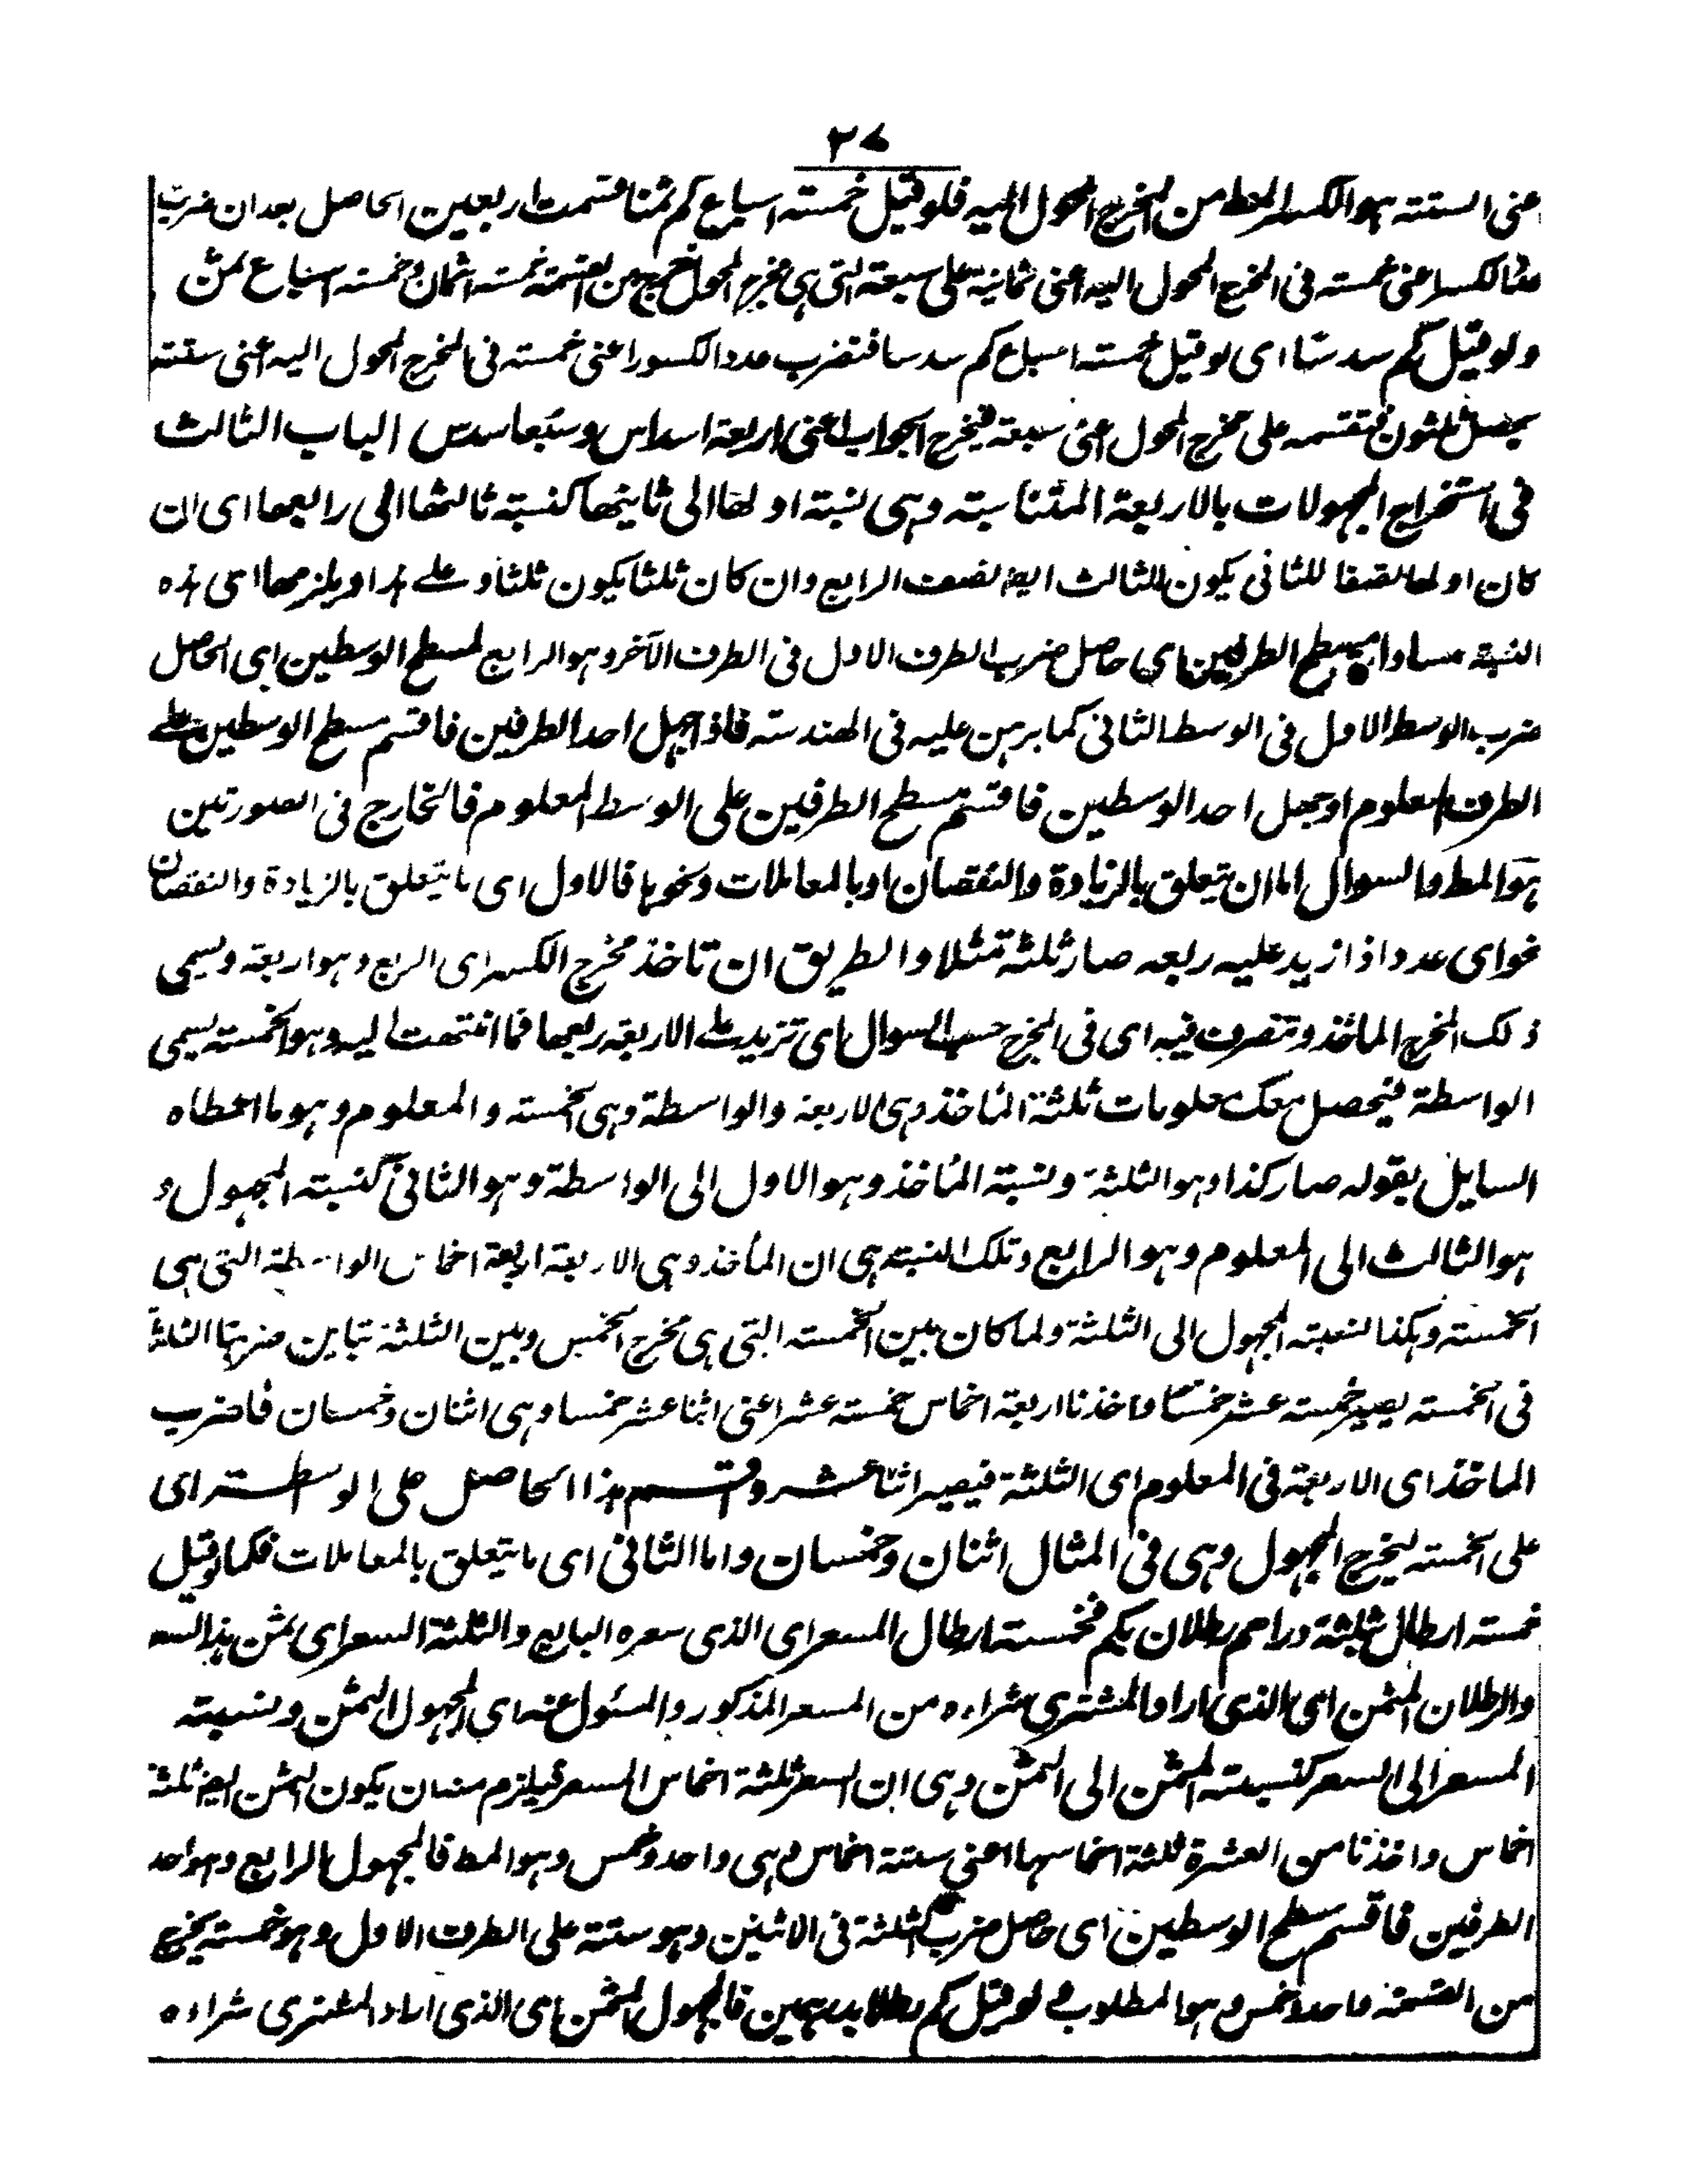 ٢٧
عنى الستته هو الكسر المط من المخرج المحول اليه فلو قيل خمسته اسباع كم ثمنا قسمت اربعين الحاصل بعد ان ضربت
عدد الكسر اعنى خمسته فى المخرج المحول اليه اعنى ثمانية على سبعة التى هى مخرج المحول خرج من القسمة خمسته اثمان وخمسته اسباع ثمن
ولو قيل كم سدسا اى لو قيل خمسته اسباع كم سدسا فتضرب عدد الكسور اعنى خمسته فى المخرج المحول اليه اعنى ستته
يحصل ثلثون فتقسمه على مخرج المحول اعنى سبعة فيخرج الجواب اعنى اربعة اسداس وسبعا سدس الباب الثالث
فى استخراج المجهولات بالاربعة المتناسبته وهى نسبته اولها الى ثانيها كنسبته ثالثها الى رابعها اى ان
كان اولها نصفا للثانى يكون الثالث ايضا نصف الرابع وان كان ثلثا يكون ثلثا و على هذا ويلزمها اى هذه
النسبته مساواة مسطح الطرفين اى حاصل ضرب الطرف الاول فى الطرف الآخر وهو الرابع لمسطح الوسطين اى الحاصل
ضرب الوسط الاول فى الوسط الثانى كما برهن عليه فى الهندسته فاذا جهل احد الطرفين فاقسم مسطح الوسطين على
الطرف المعلوم او جهل احد الوسطين فاقسم مسطح الطرفين على الوسط المعلوم فالخارج فى الصورتين
هو المط والسوال اما ان يتعلق بالزيادة والنقصان او بالمعاملات ونحوها فالاول اى ما يتعلق بالزيادة والنقصان
نحو اى عدد اذا زيد عليه ربعه صار ثلثة مثلا والطريق ان تاخذ مخرج الكسر اى الربع وهو اربعة ويسمى
ذلك المخرج الماخذ وتتصرف فيه اى فى المخرج حسب السوال اى تزيد على الاربعة ربعها فما انتهت اليه وهو الخمسته يسمى
الواسطة فيحصل معك معلومات ثلثة الماخذ وهى الاربعة والواسطة وهى الخمسته والمعلوم وهو ما اعطاه
السايل بقوله صار كذا وهو الثلثة ونسبة الماخذ وهو الاول الى الواسطة وهو الثانى كنسبته المجهول و
هو الثالث الى المعلوم وهو الرابع وتلك النسبته هى ان الماخذ وهى الاربعة اربعة اخماس الواسطة التى هى
الخمسته وهكذا نسبته المجهول الى الثلثة ولما كان بين الخمسته التى هى مخرج الخمس وبين الثلثة تباين ضربنا الثلثة
فى الخمسته يصير خمسته عشر خمسا واخذنا اربعة اخماس خمسته عشر اعنى اثنا عشر خمسا وهى اثنان وخمسان فاضرب
الماخذ اى الاربعة فى المعلوم اى الثلثة فيصير اثنا عشر وقسم هذا الحاصل على الوسطة اى
على الخمسته ليخرج المجهول وهى فى المثال اثنان وخمسان واما الثانى اى ما يتعلق بالمعاملات فكما لو قيل
خمسته ارطال بثلثة دراهم رطلان بكم فخمسته ارطال المسعر اى الذى سعره البايع والثلثة السعر اى ثمن هذا السعر
والرطلان المثمن اى الذى اراد المشترى شراءه من المسعر المذكور والمسئول عنه اى المجهول الثمن ونسبته
المسعر الى السعر كنسبته المثمن الى الثمن وهى ان السعر ثلثة اخماس المسعر فيلزم منه ان يكون الثمن ايضا ثلثة
اخماس واخذنا من العشرة ثلثة اخماسها اعنى ستته اخماس وهى واحد وخمس وهو المط فالمجهول الرابع وهو احد
الطرفين فاقسم مسطح الوسطين اى حاصل ضرب الثلثة فى الاثنين وهو ستته على الطرف الاول وهو خمسته يخرج
من القسمة واحد وخمس وهو المطلوب ولو قيل كم رطلا بدرهمين فالمجهول المثمن اى الذى اراد المشترى شراءه